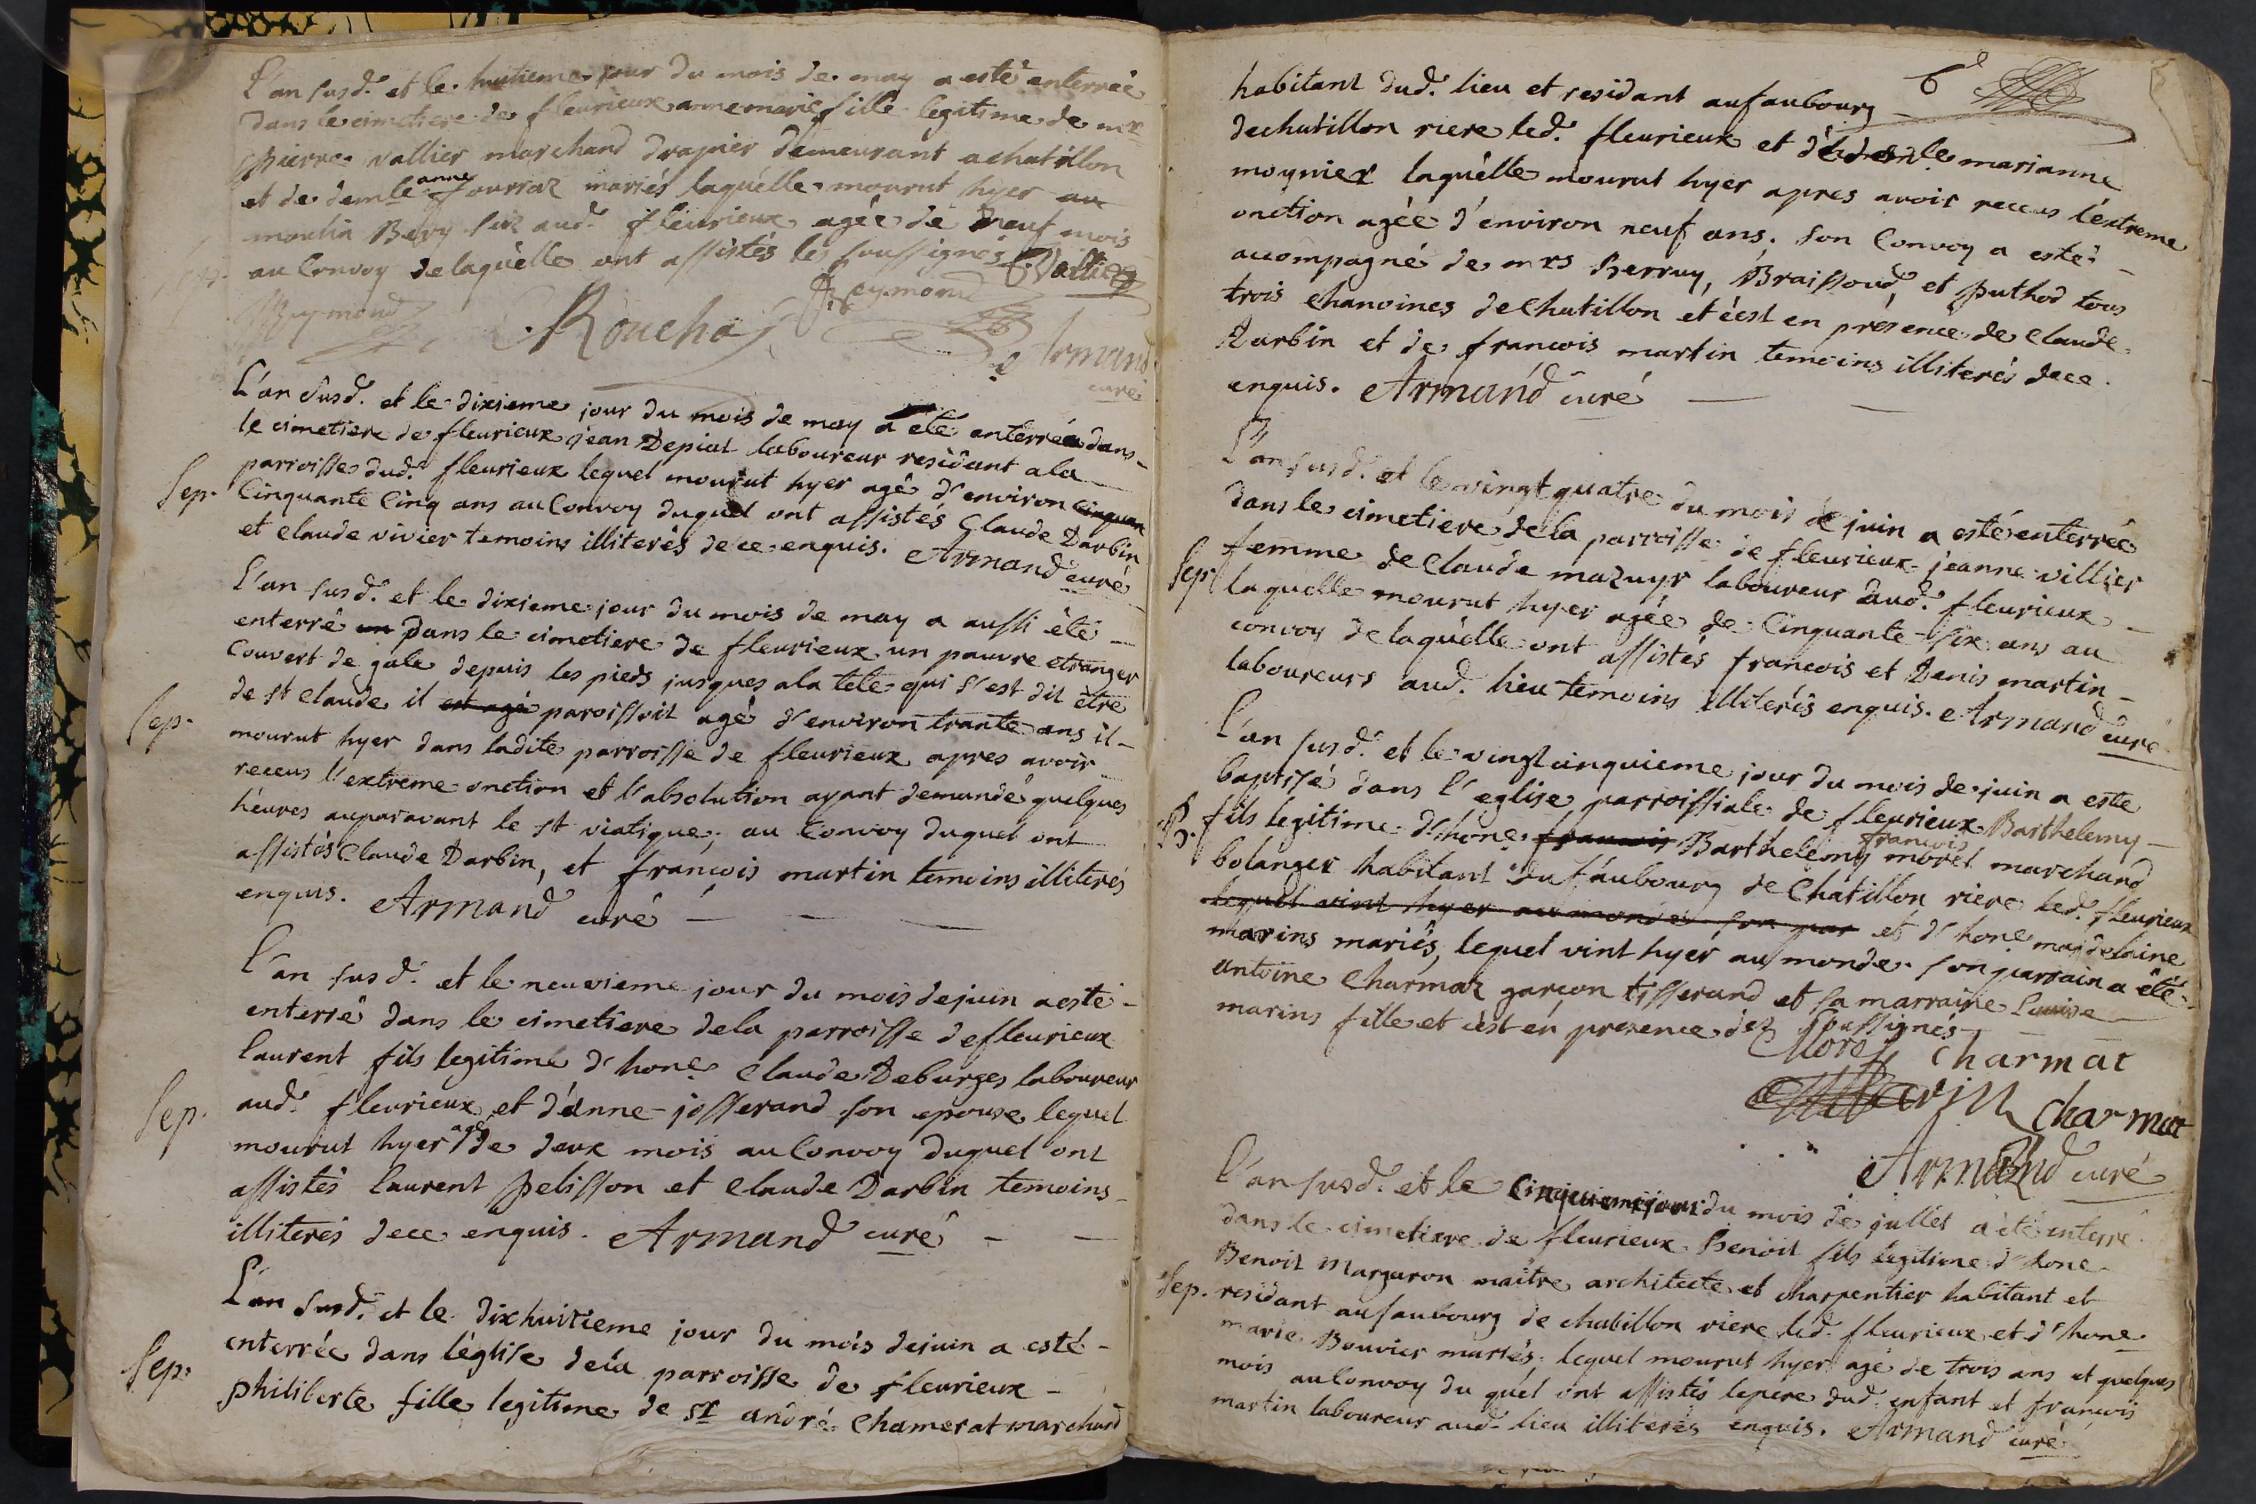 L'an susd. et le huitieme jour du mois de may a esté enterrée
dans le cimetiere de fleurieux anne marie fille legitime de mr
pierre vallier marchand drapier demeurant a chatillon
et de demlle anne Jourraz mariés laquelle mourut hyer au
moulin Bevy sur aud. fleurieux agée de neuf mois
au Convoy de laquélle ont assistés les soussignés Vallier
Reymond Roucha Reymond
Armand
curé
L'an susd. et le dixieme jour du mois de may a eté enterrée dans
le cimetiere de fleurieux jean Depiat laboureur residant a la
parroisse dud. fleurieux lequel mourut hyer agé d'environ cinquan
Sep. Cinquante Cinq ans au Convoy duquel ont assistés Claude Darbin
et claude vivier temoins illiterés de ce enquis. Armand curé
L'an susd. et le dixieme jour du mois de may a aussi été
enterré un dans le cimetiere de fleurieux un pauvre etranger
Couvert de gale depuis les pieds jusques a la tete qui s'est dit être
de st claude il est agé paroissoit agé d'environ trante ans il
Sep. mourut hyer dans ladite parroisse de fleurieux apres avoir
receus l'extreme onction et l'absolution ayant demandé quelques
héures auparavant le st viatique; au Convoy duquel ont
assistés Claude Darbin, et françois martin temoins illiterés
enquis. Armand curé
L'an susd. et le neuvieme jour du mois de juin a esté
enterré dans le cimetiere de la parroisse de fleurieux
laurent fils legitime d'hone Claude Deburges laboureur
Sep. aud. fleurieux et d'anne josserand son epouse lequel
mourut hyer agé de deux mois au Convoy duquel ont
assistés laurent pelisson et claude Darbin temoins
illiterés de ce enquis. Armand curé
L'an susd. et le dixhuitieme jour du mois de juin a esté
enterrée dans l'église de la parroisse de fleurieux
Sep. philiberte fille legitime de sr andré Chamerat marchand
6e
habitant dud. lieu et residant au faubourg
de chatillon riere led. fleurieux et de demlle marianne
moynier laquélle mourut hyer apres avoir receus l'extreme
onction agée d'environ neuf ans. son Convoy a esté
accompagné de mrs Berruy, Braissoud, et puthod tous
trois chanoines de chatillon et c'est en présence de claude
Darbin et de francois martin temoins illiterés de ce
enquis. Armand curé
L'an susd. et le vingt quatre du mois de juin a esté enterrée
dans le cimetiere de la parroisse de fleurieux jeanne villier
femme de Claude mazuyr laboureur dud. fleurieux
Sep. laquelle mourut hyer agée de Cinquante six ans au
convoy de laquélle ont assistés francois et Denis martin
laboureurs aud. lieu temoins illiterés enquis. Armand curé
L'an susd. et le vingt cinquieme jour du mois de juin a este
baptisé dans l'eglise parroissiale de fleurieux Barthelemy
B. fils legitime d'hone francois Barthelemy francois morel marchand
bolanger habitant du faubourg de Chatillon riere led. fleurieux
lequel vint hyer au monde son par et d'hone magdelaine
marins mariés, lequel vint hyer au monde. son parrain a été
antoine Charmaz garçon tisserand et sa marraine Louise
marins fille et c'est en presence des soussignés
Morel charmat
Marin charmat
Armand curé
L'an susd. et le cinquieme jour du mois de jullet a été enterré
dans le cimetiere de fleurieux Benoit fils legitime d'hone
Benoit Margaron maitre architecte et charpentier habitant et
Sep. residant au faubourg de chatillon riere led. fleurieux et d'hone
marie Bouvier mariés. lequel mourut hyer agé de trois ans et quelques
mois au Convoy du quél ont assistés le pere dud. enfant et francois
martin laboureur aud. lieu illiterés enquis. Armand curé